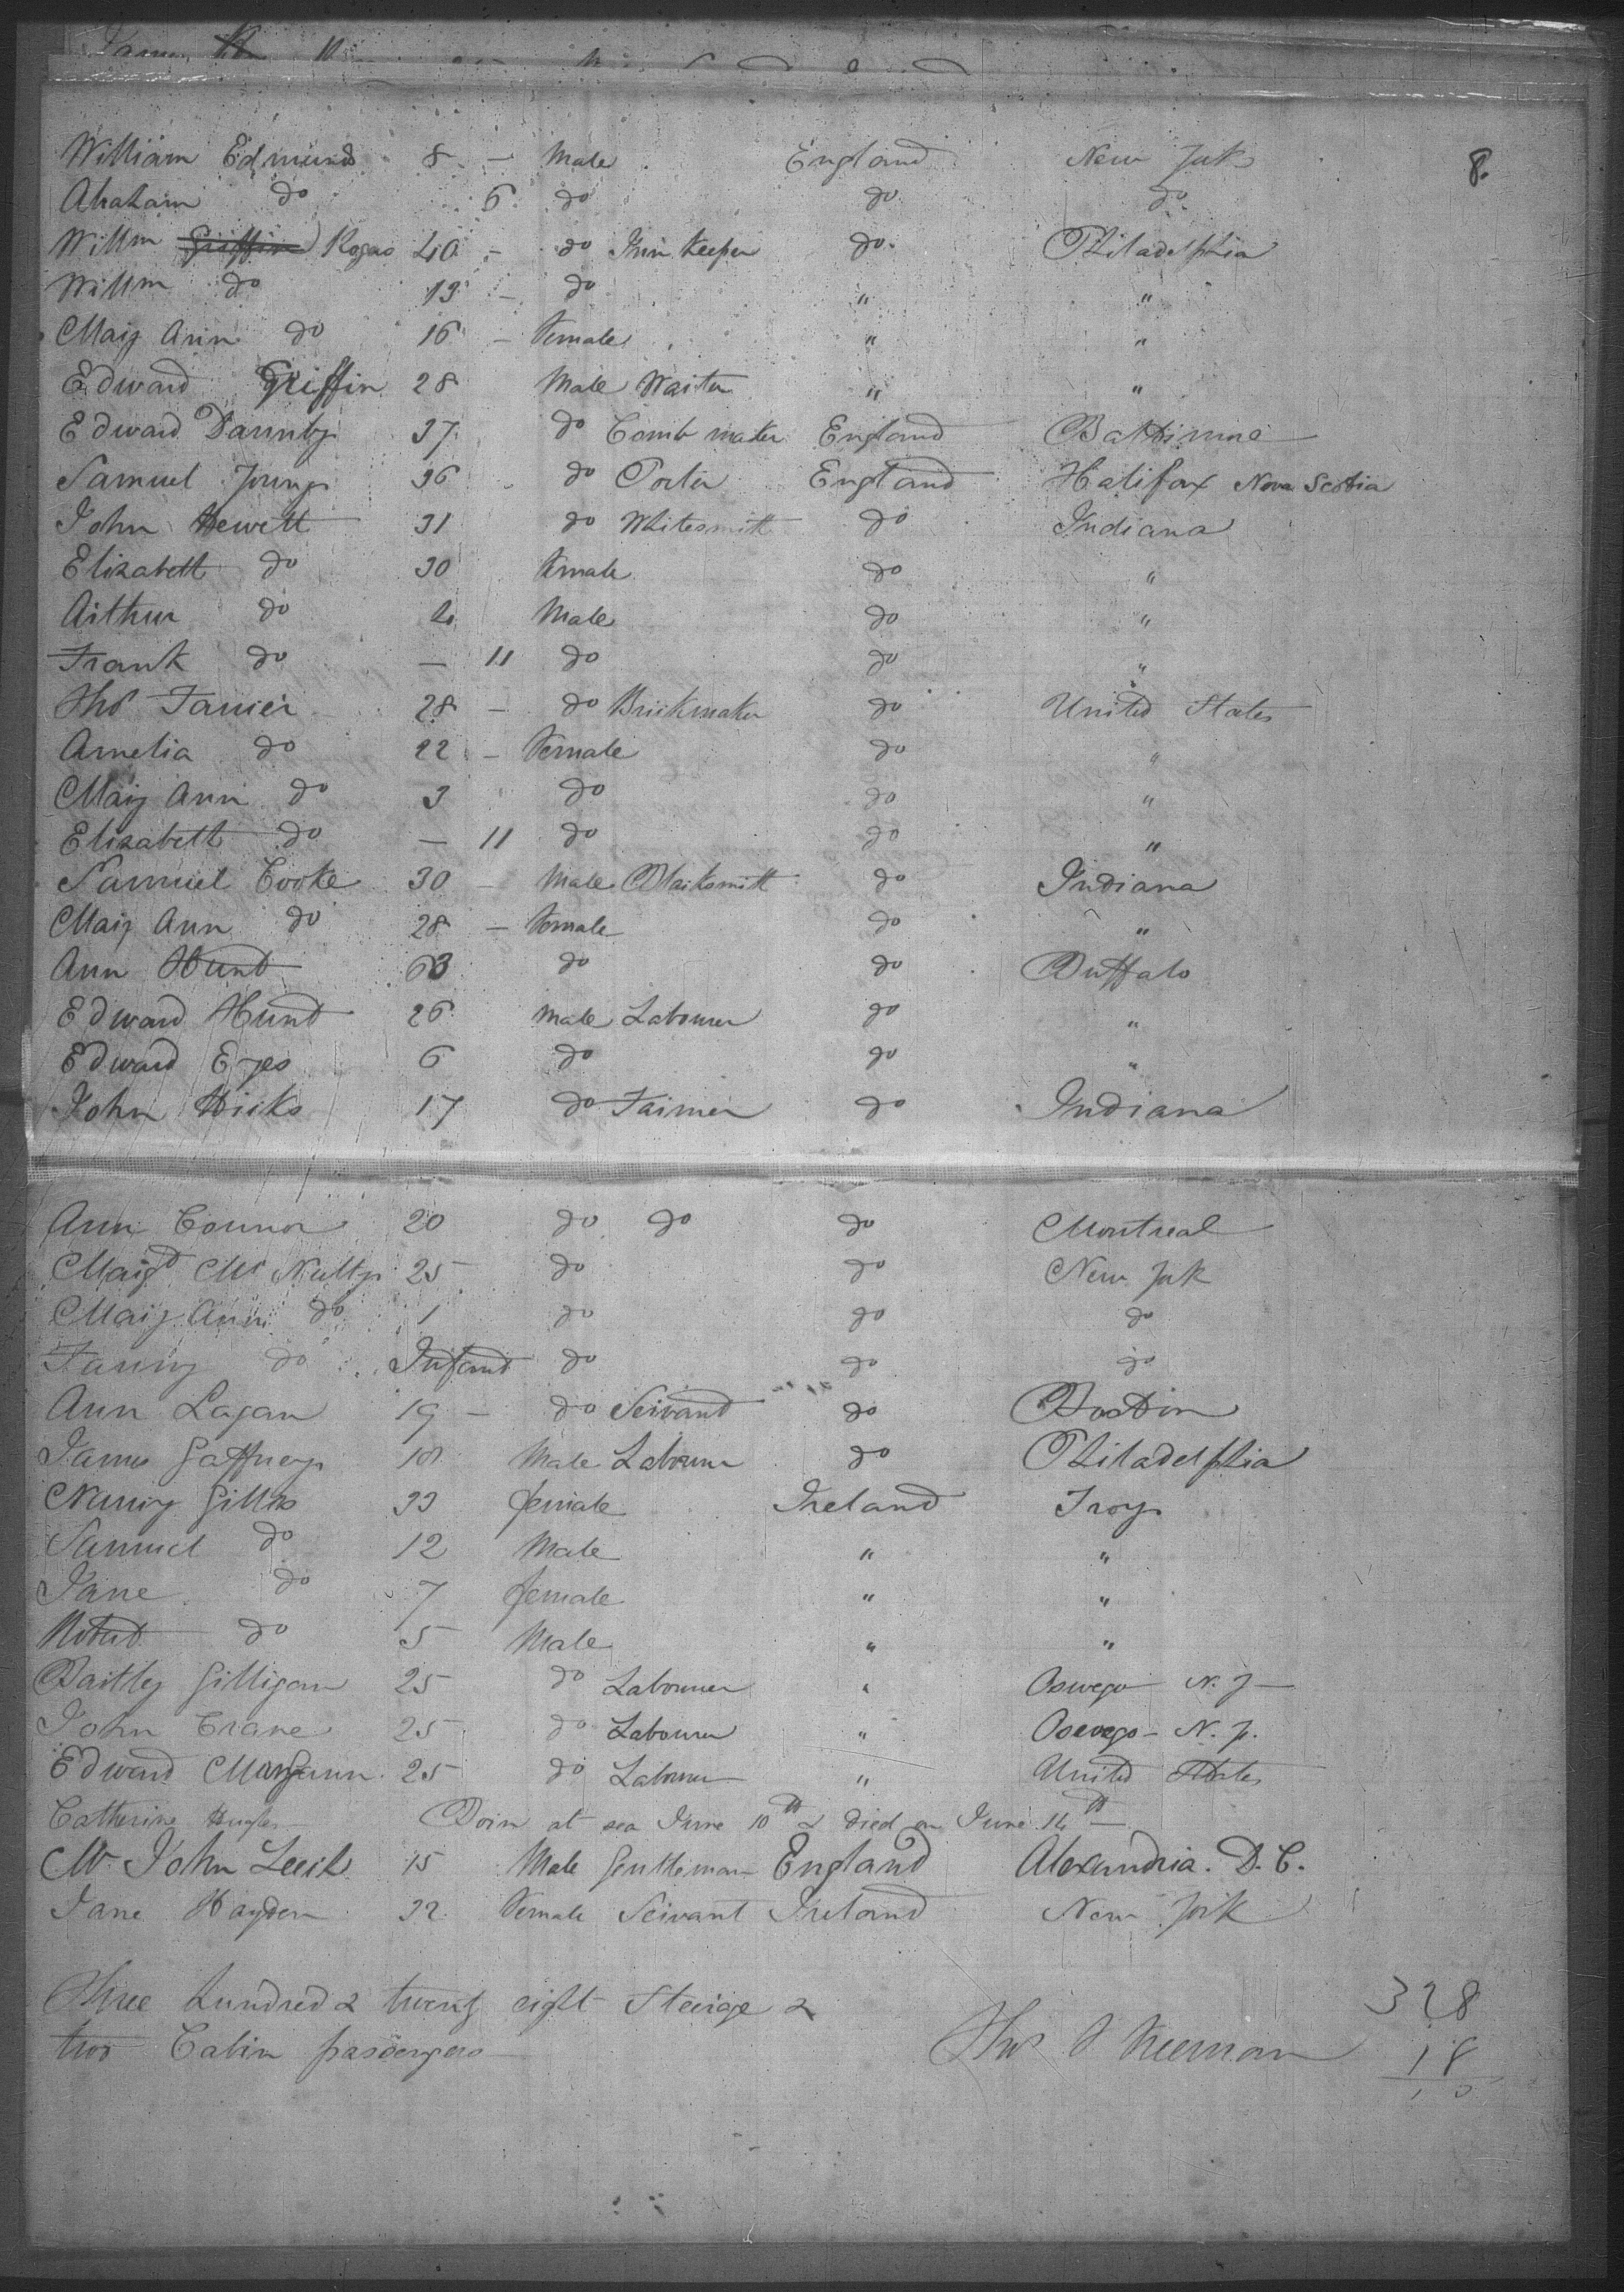 William Edmund 8 - Male England New York 8.
Abraham do 6 do do do
Willm Griffin Rogers 40 - do Inn Keeper do Philadelphia
Willm do 19 - do " "
Mary Ann do 16 - Female " "
Edward Griffin 28 Male Waiter " "
Edward Darnby 37 do Comb maker England Baltimore
Samuel Young 36 do Porter England Halifax Nova Scotia
John Hewett 31 do Whitesmith do Indiana
Elizabeth do 30 Female do "
Arthur do 4 Male do "
Frank do - 11 do do "
Thos Farrier 28 - do Brickmaker do United States
Amelia do 22 - Female do "
Mary Ann do 3 do do "
Elizabeth do - 11 do do "
Samuel Cooke 30 - Male Blacksmith do Indiana
Mary Ann do 28 - Female do "
Ann Hunt 63 do do Buffalo
Edward Hunt 26 Male Labourer do "
Edward Eyes 6 do do "
John Hicks 17 do Farmer do Indiana
Ann Connor 20 do do do Montreal
Margt Mc Nulty 25 do do New York
Mary Ann do 1 do do do
Fanny do Infant do do do
Ann Lagan 19 - do Servant do Boston
James Gaffney 18 Male Labourer do Philadelphia
Nancy Gilles 33 female Ireland Troy
Samuel do 12 Male " "
Jane do 7 female " "
Robert do 5 Male " "
Bartley Gilligan 25 do Labourer " Oswego N. Y
John Crane 25 do Labourer " Oswego - N. Y.
Edward 25 do Labourer " United States
Catherine Hughes Born at sea June 10th & died on June 14th
Mr John Leeik 15 Male Gentleman England Alexandria. D. C.
Jane Hayden 32 Female Servant Ireland New York
Three hundred & twenty eight Steerage & 328
two Cabin passengers Thos Freeman 18